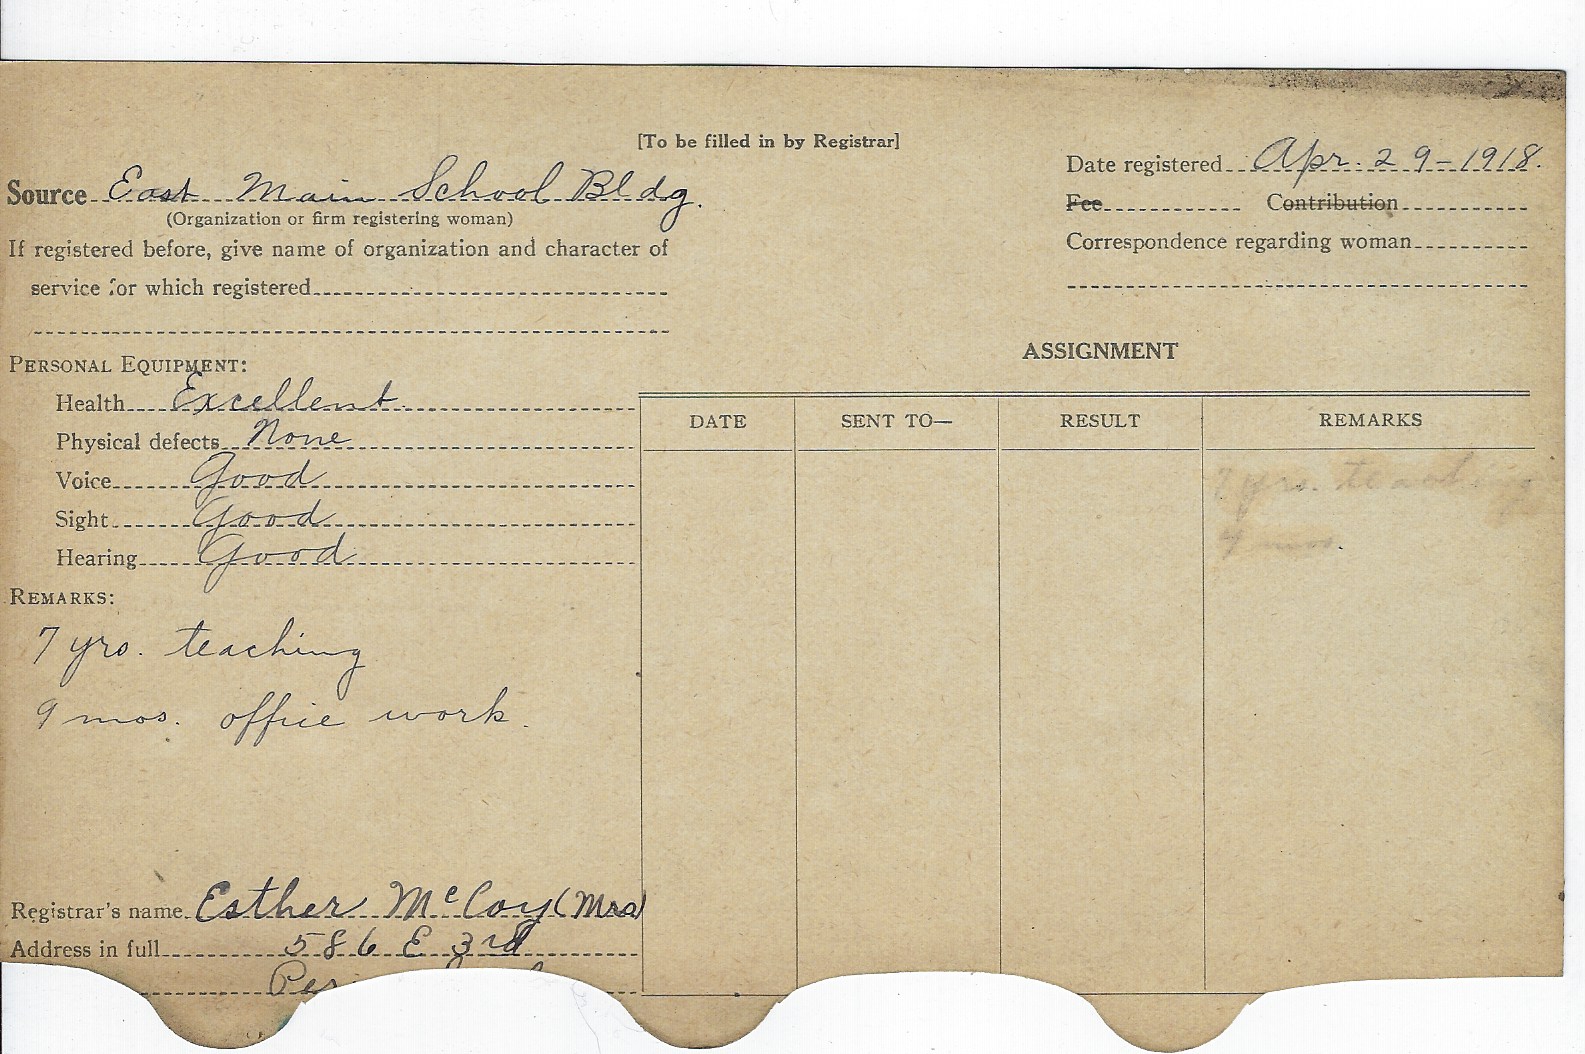 [To be filled in by Registrar]
Date registered Apr. 29-1918.
Source East Main School Bldg.
(Organization or firm registering woman)
Fee Contribution
If registered before, give name of organization and character of
Correspondence regarding woman
service for which registered
PERSONAL EQUIPMENT:
ASSIGNMENT
Health Excellent.
Physical defects None
Voice Good
Sight Good
Hearing Good
DATE SENT TO— RESULT REMARKS
7 yrs. teaching
9 mos.
REMARKS:
7 yrs. teaching
9 mos. office work.
Registrar's name Esther McCoy (Mrs)
Address in full 586 E 3rd